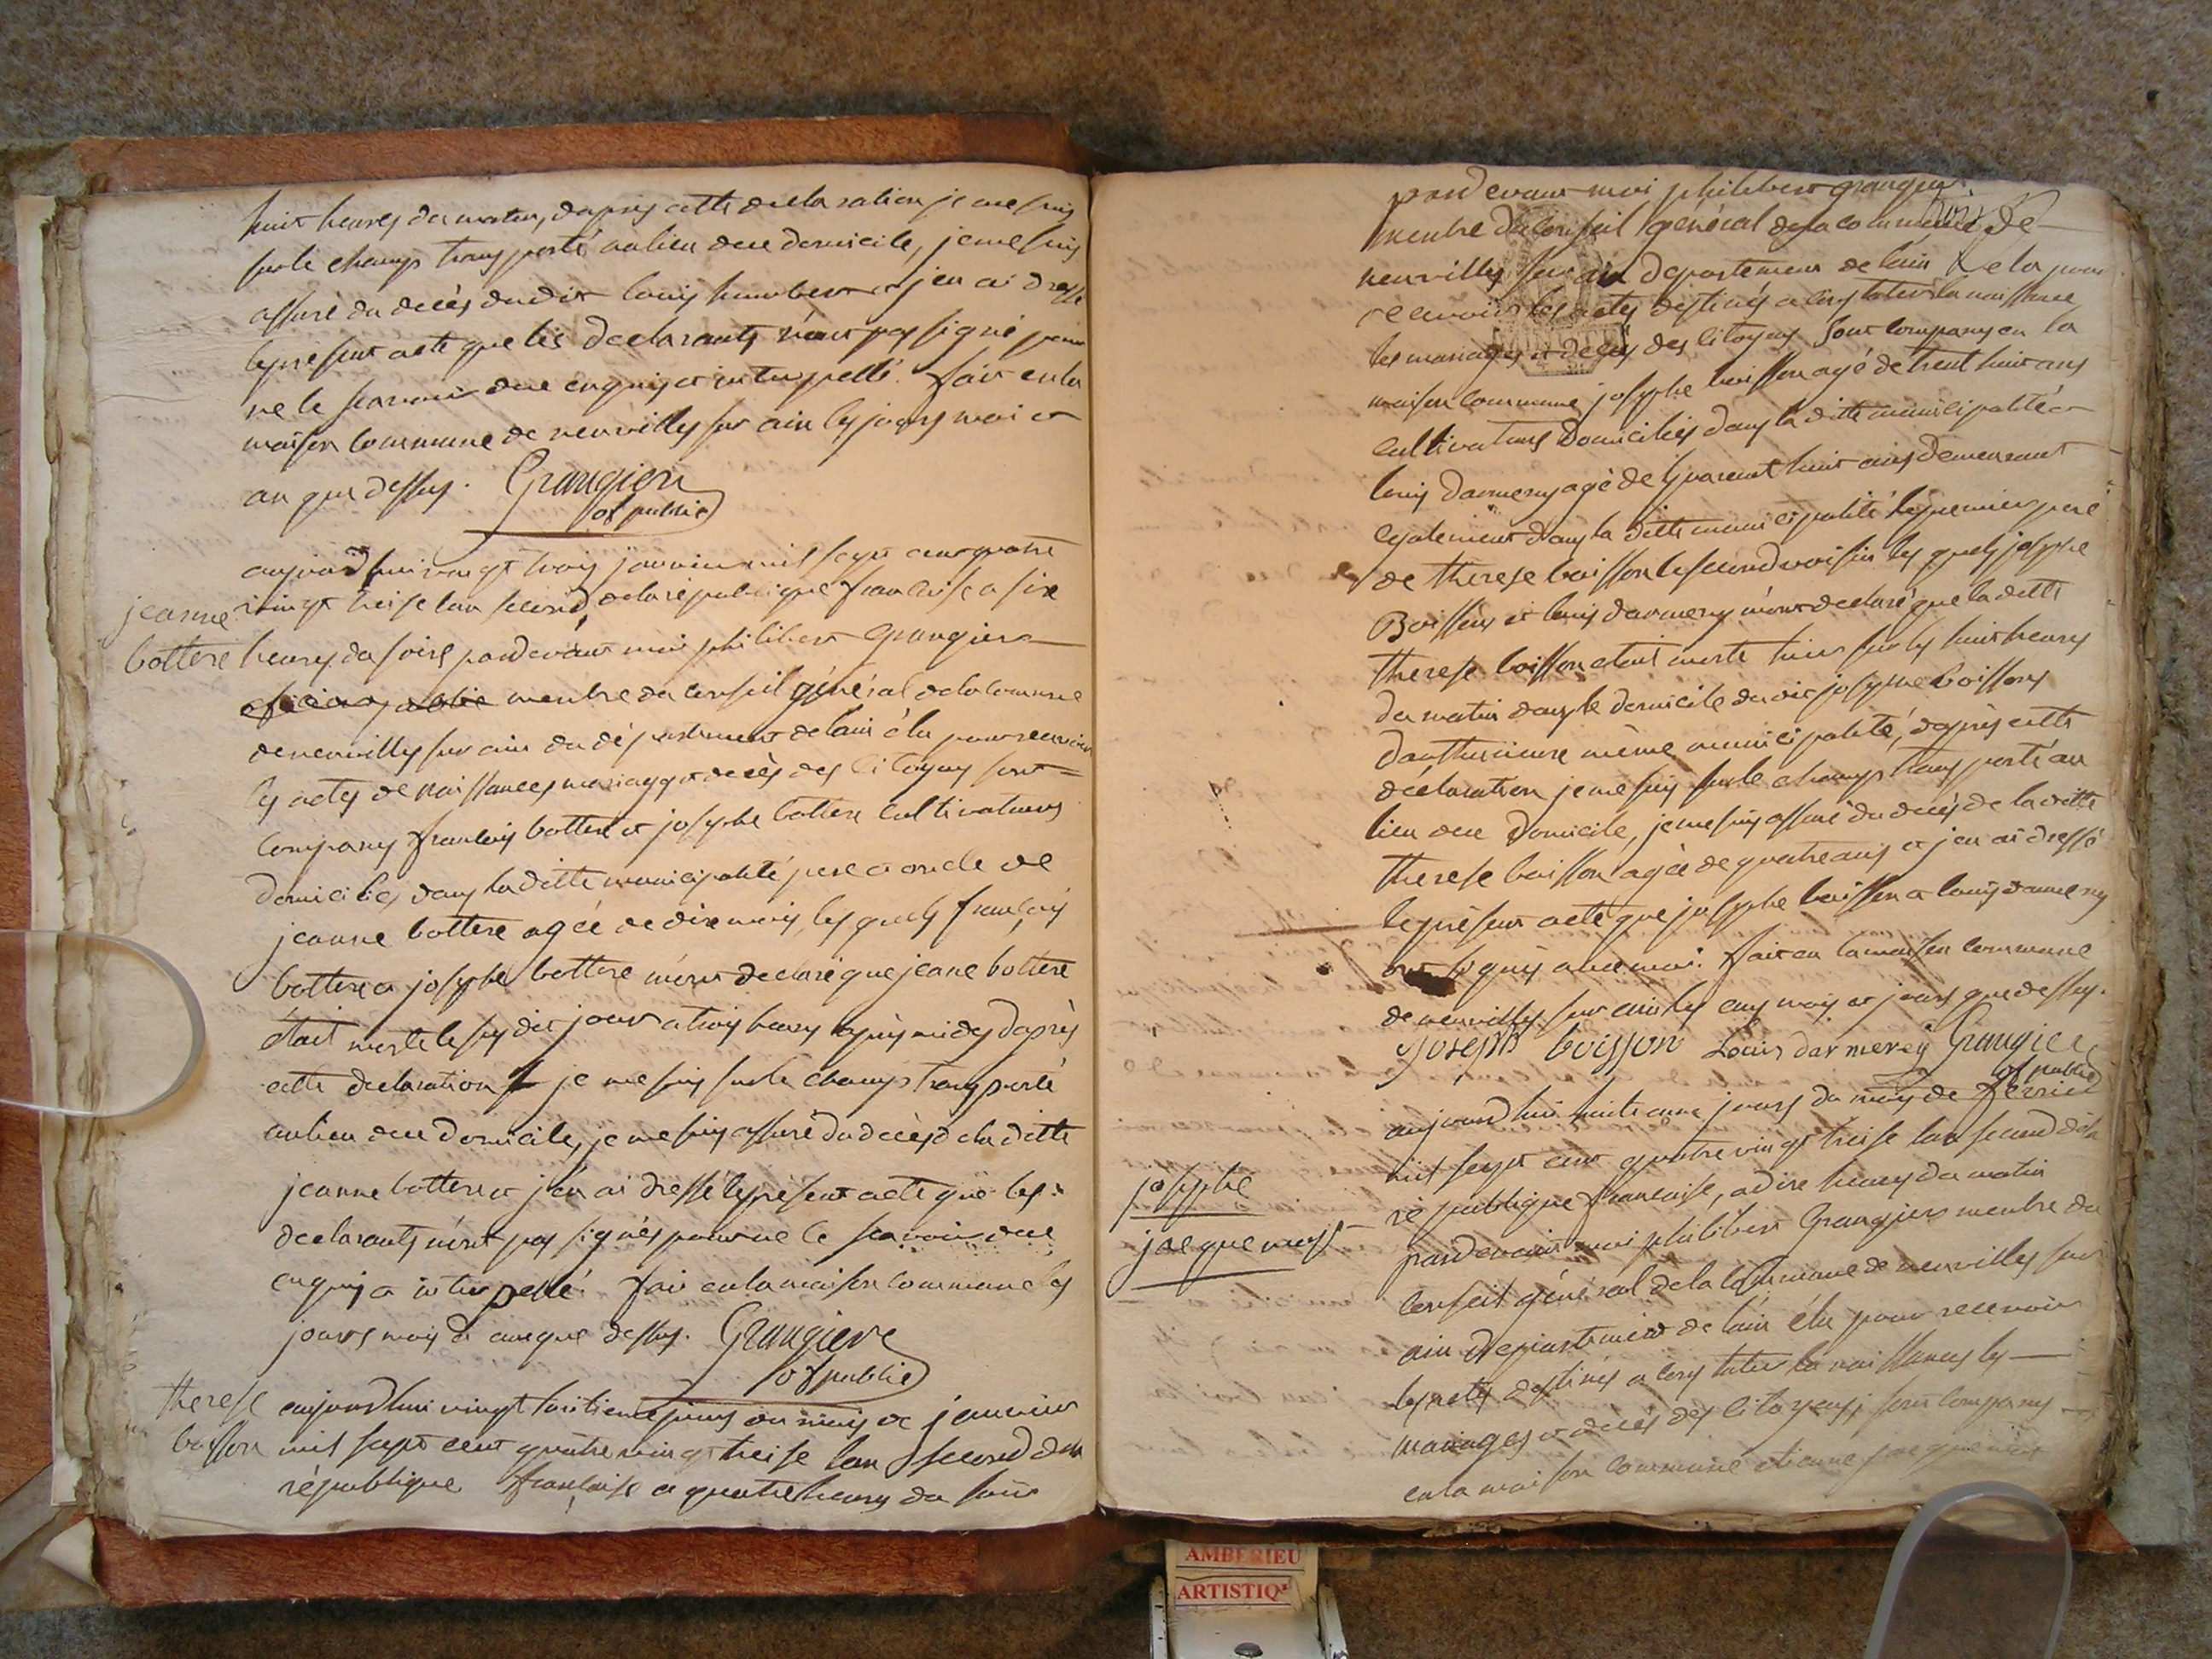 huit heures du matin, dapres cette declaration je me suis
sur le champs transporté au lieu due domicile, je me suis
assuré du decès dudit louis humbert et jen ai dressé
le present acte que les declarants n'ont pas signé pour
ne le scavoir due enquis et interpellé. fait en la
maison commune de neuvilles sur ain les jours moi et
an que dessus. Grangier
of public
aujourd'hui vingt trois janvier mil sept cent quatre
jeanne vingt treise lan second de la république francaise a six
bottere heures du soire pardevant moi philibert Grangier
oficier public membre du conseil général de la commune
de neuvilles sur ain du département de lain élu pour recevoir
les actes de naissances mariages et decès des citoyens sont
comparus francois bottere et josephe bottere cultivateurs
domiciliés dans la ditte municipalité pere et oncle de
jeanne bottere agée de dix mois, les quels francois
bottere et josephe bottere m'ont declaré que jeane bottere
était morte le susdit jour a trois heures après midy daprès
cette declaration je me suis sur le champs transporté
au lieu due domicile, je me suis assuré du decès de la ditte
jeanne bottere et jen ai dressé le present acte que les
declarants n'ont pas signés pour ne le scavoir due
enquis et interpellé. fait en la maison commune les
jours mois et an que dessus. Grangier
of public
therese aujourdhui vingt huitieme jours du mois de janvier
boisson mil sept cent quatre vingt treise lan second de la
république francaise a quatre heures du soir
pardevant moi philibert grangier
membre du conseil général de la commune de
neuvilles sur ain departement de lain élu pour
recevoir les actes destinés a constater la naissance
les mariages et decès des citoyens sont comparus en la
maison commune josephe boisson agé de trent huit ans
cultivateurs domiciliés dans la ditte municipalité et
louis darmerey agé de quarent huit ans demeurant
egalement dans la ditte municipalité le premier pere
de therese boisson le second voisin les quels josephe
Boisson et louis darmerey m'ont declaré que la ditte
therese boisson etait morte hier sur les huit heures
du matin dans le domicile dudit josephe boisson
dauthurieure même municipalité, daprès cette
déclaration je me suis sur le champs transporté au
lieu due domicile, je me suis assuré du decès de la ditte
therese boisson agée de quatre ans et jen ai dressé
le présent acte que josephe boisson et louis darmerey
ont signés avec moi. fait en la maison commune
de neuvilles sur ain les ans mois et jours que dessus.
Joseph boisson Louis darmerey Grangier
of public
aujourdhui huitieme jours du mois de fevrier
mil sept cent quatre vingt treise lan second de la
josephe république francaise, a dix heures du matin
jacquemet pardevant moi philibert Grangier membre du
conseil général de la commune de neuvilles sur
ain departement de lain élu pour recevoir
les actes destinés a constater la naissances les
mariages et decès des citoyens, sont comparus
en la maison commune etienne jacquemet